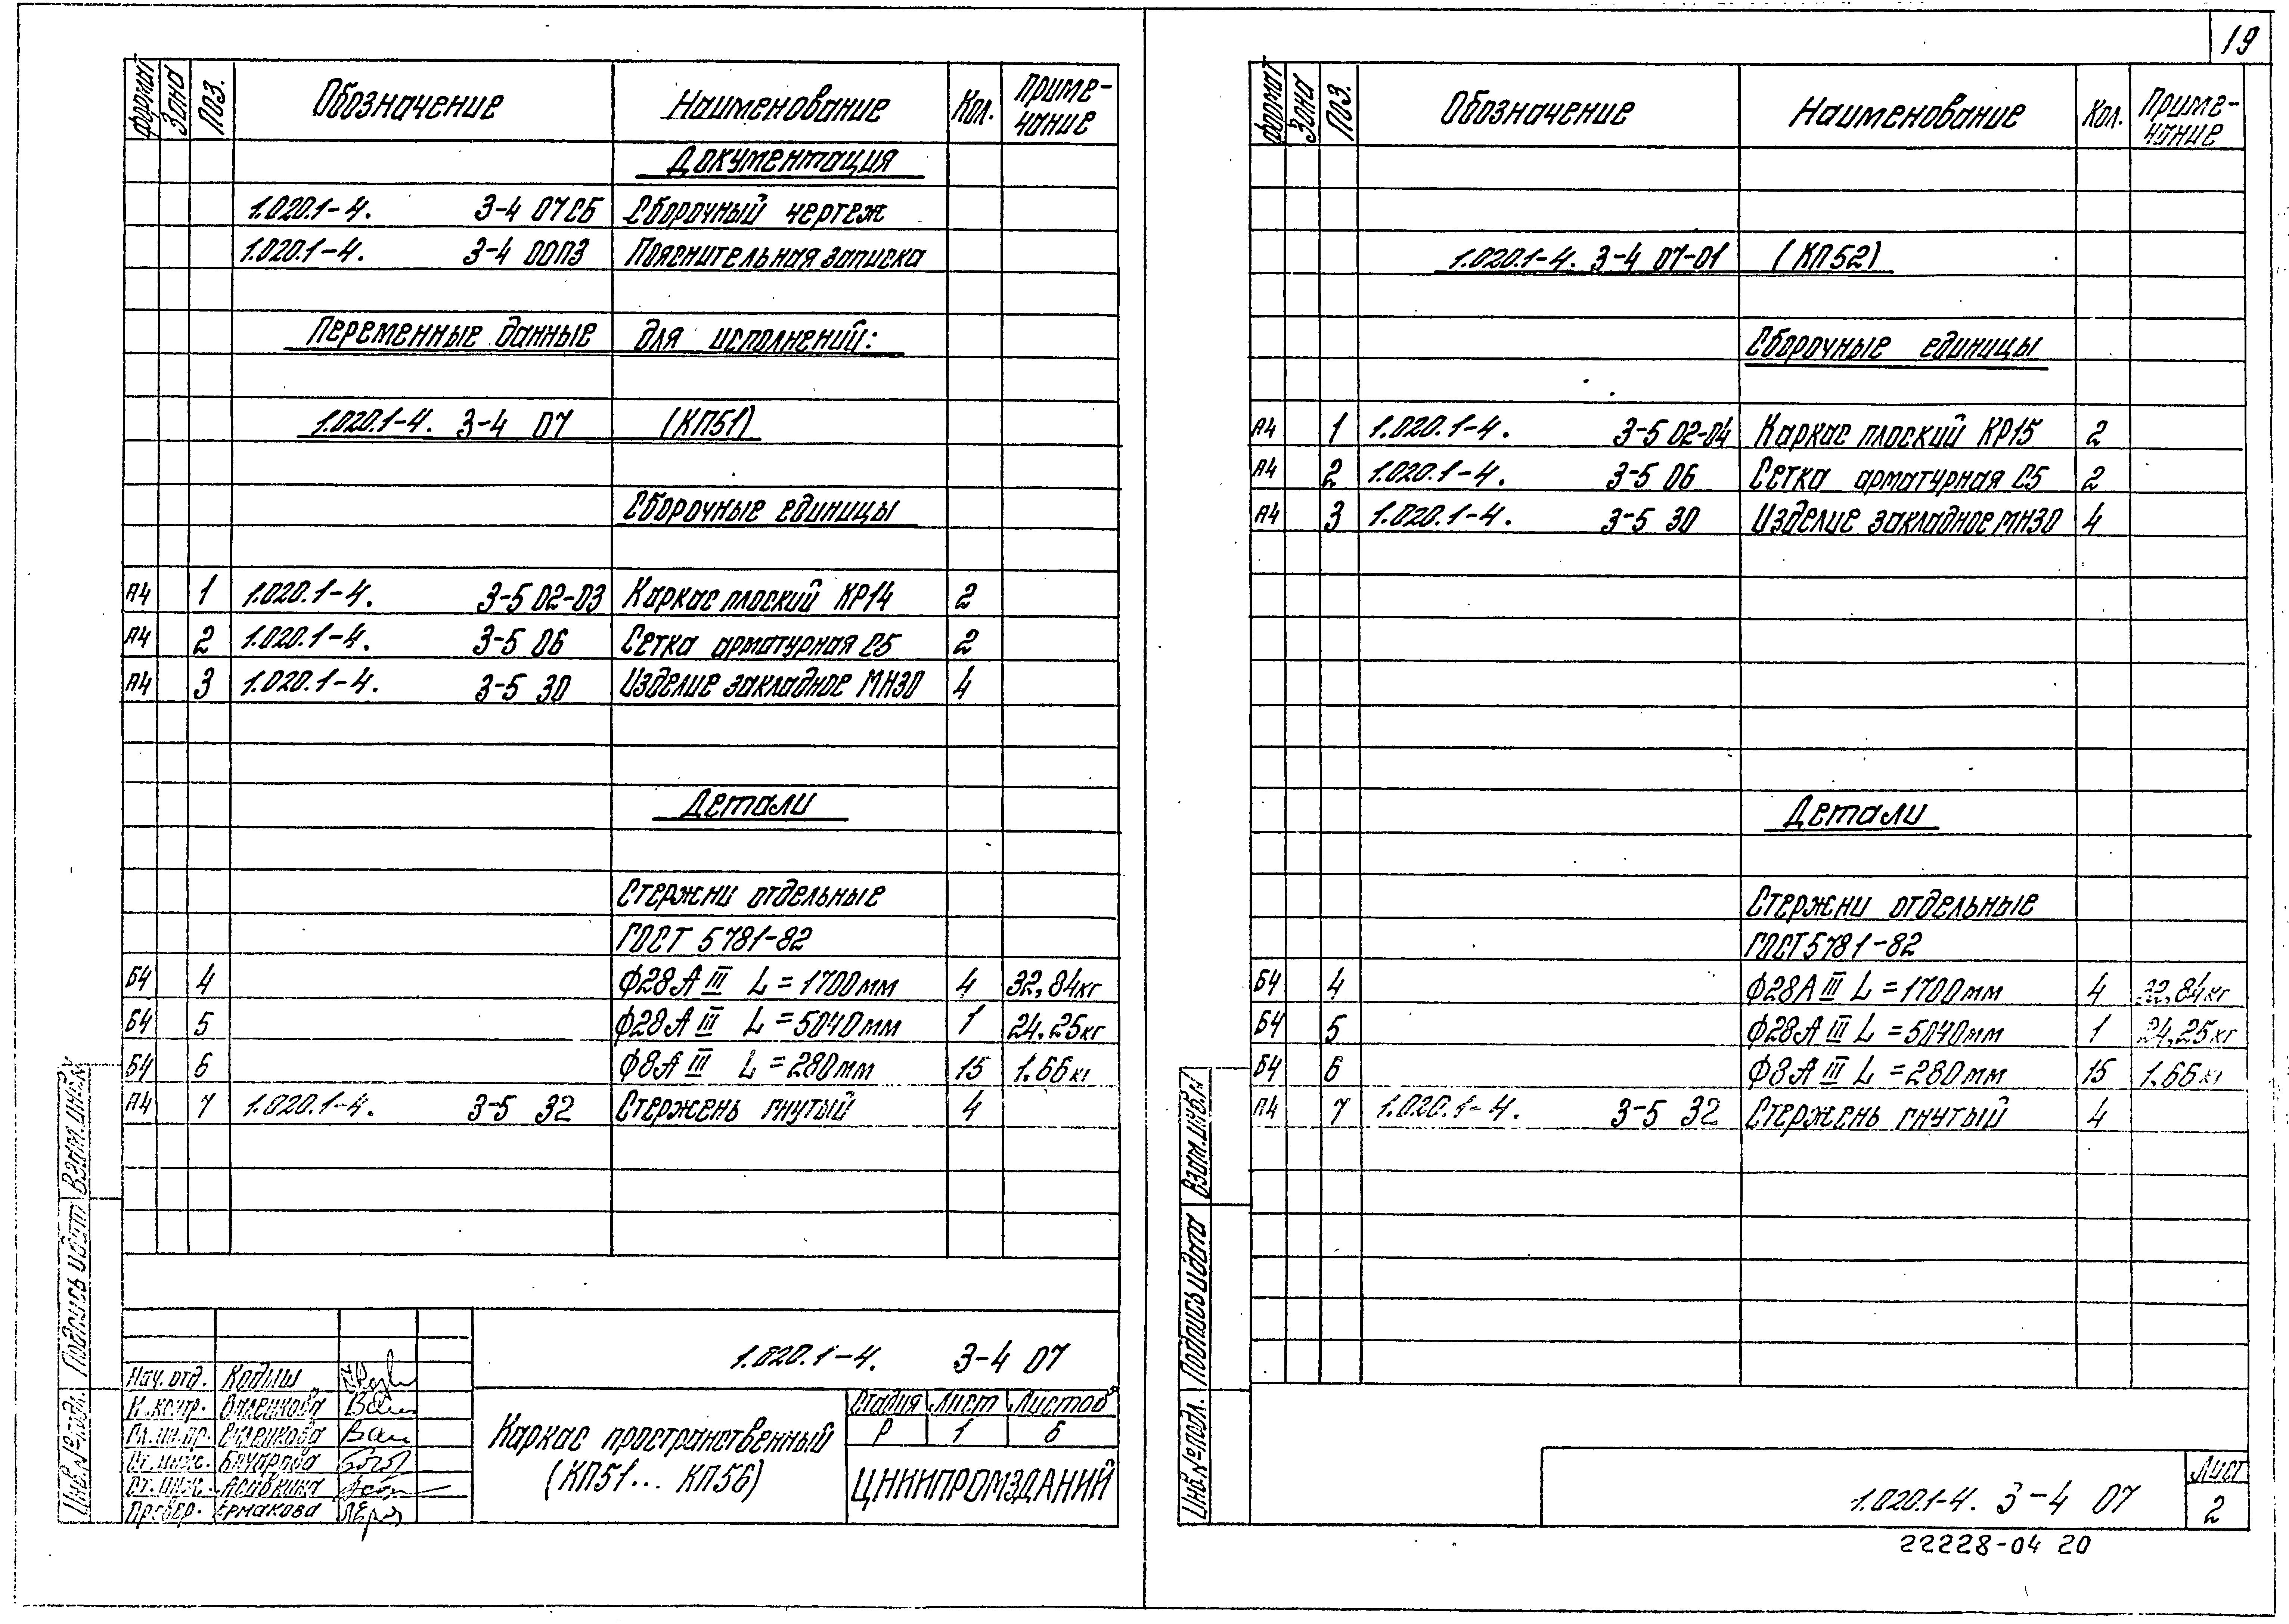 19
Формат Зона Поз. Обозначение Наименование Кол. Приме-чание
Документация
1.020.1-4. 3-4 07СБ Сборочный чертеж
1.020.1-4. 3-4 00ПЗ Пояснительная записка
Переменные данные для исполнений:
1.020.1-4. 3-4 07 (КП51)
Сборочные единицы
А4 1 1.020.1-4. 3-5 02-03 Каркас плоский КР14 2
А4 2 1.020.1-4. 3-5 06 Сетка арматурная С5 2
А4 3 1.020.1-4. 3-5 30 Изделие закладное МН30 4
Детали
Стержни отдельные
ГОСТ 5781-82
Б4 4 Ф28АIII L=1700мм 4 32,84кг
Б4 5 Ф28АIII L=5040мм 1 24,25кг
Б4 6 Ф8АIII L=280мм 15 1.66кг
А4 7 1.020.1-4. 3-5 32 Стержень гнутый 4
Инв.№ подл. Подпись и дата Взам.инв.№
Нач.отд. Кодыш
Н.контр.
Гл.ин.пр.
Ст.инж.
Ст.инж.
Провер. Ермакова
1.020.1-4. 3-4 07
Каркас пространственный
(КП51... КП56)
Стадия Лист Листов
Р 1 6
ЦНИИПРОМЗДАНИЙ
Формат Зона Поз. Обозначение Наименование Кол. Приме-чание
1.020.1-4. 3-4 07-01 (КП52)
Сборочные единицы
А4 1 1.020.1-4. 3-5 02-04 Каркас плоский КР15 2
А4 2 1.020.1-4. 3-5 06 Сетка арматурная С5 2
А4 3 1.020.1-4. 3-5 30 Изделие закладное МН30 4
Детали
Стержни отдельные
ГОСТ 5781-82
Б4 4 Ф28АIII L=1700мм 4 32,84кг
Б4 5 Ф28АIII L=5040мм 1 24,25кг
Б4 6 Ф8АIII L=280мм 15 1.66кг
А4 7 1.020.1-4. 3-5 32 Стержень гнутый 4
Инв.№ подл. Подпись и дата Взам.инв.№
1.020.1-4. 3-4 07
Лист
2
22228-04 20